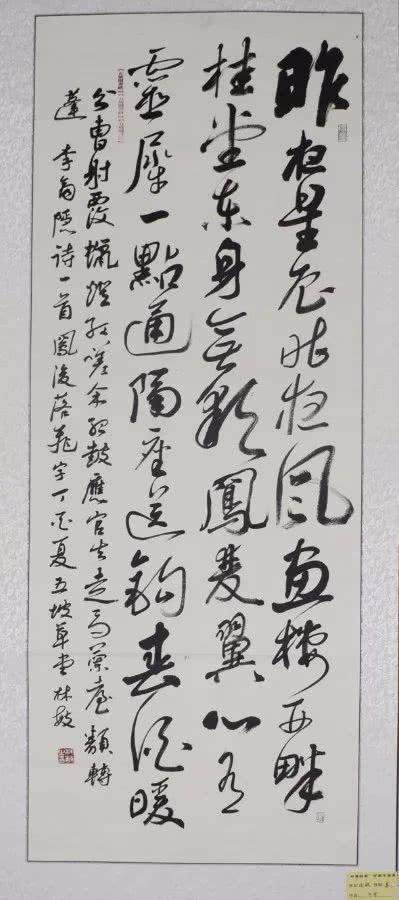 昨夜星辰昨夜風畫樓西畔
桂堂東身無彩鳳雙翼心有
靈犀一點通隔座送鉤春酒暖
分曹射覆蠟燈紅嗟余聽鼓應官去走馬蘭臺類轉
蓬 李商隱詩一首鳳後落飛字丁酉夏五坡草堂林敏